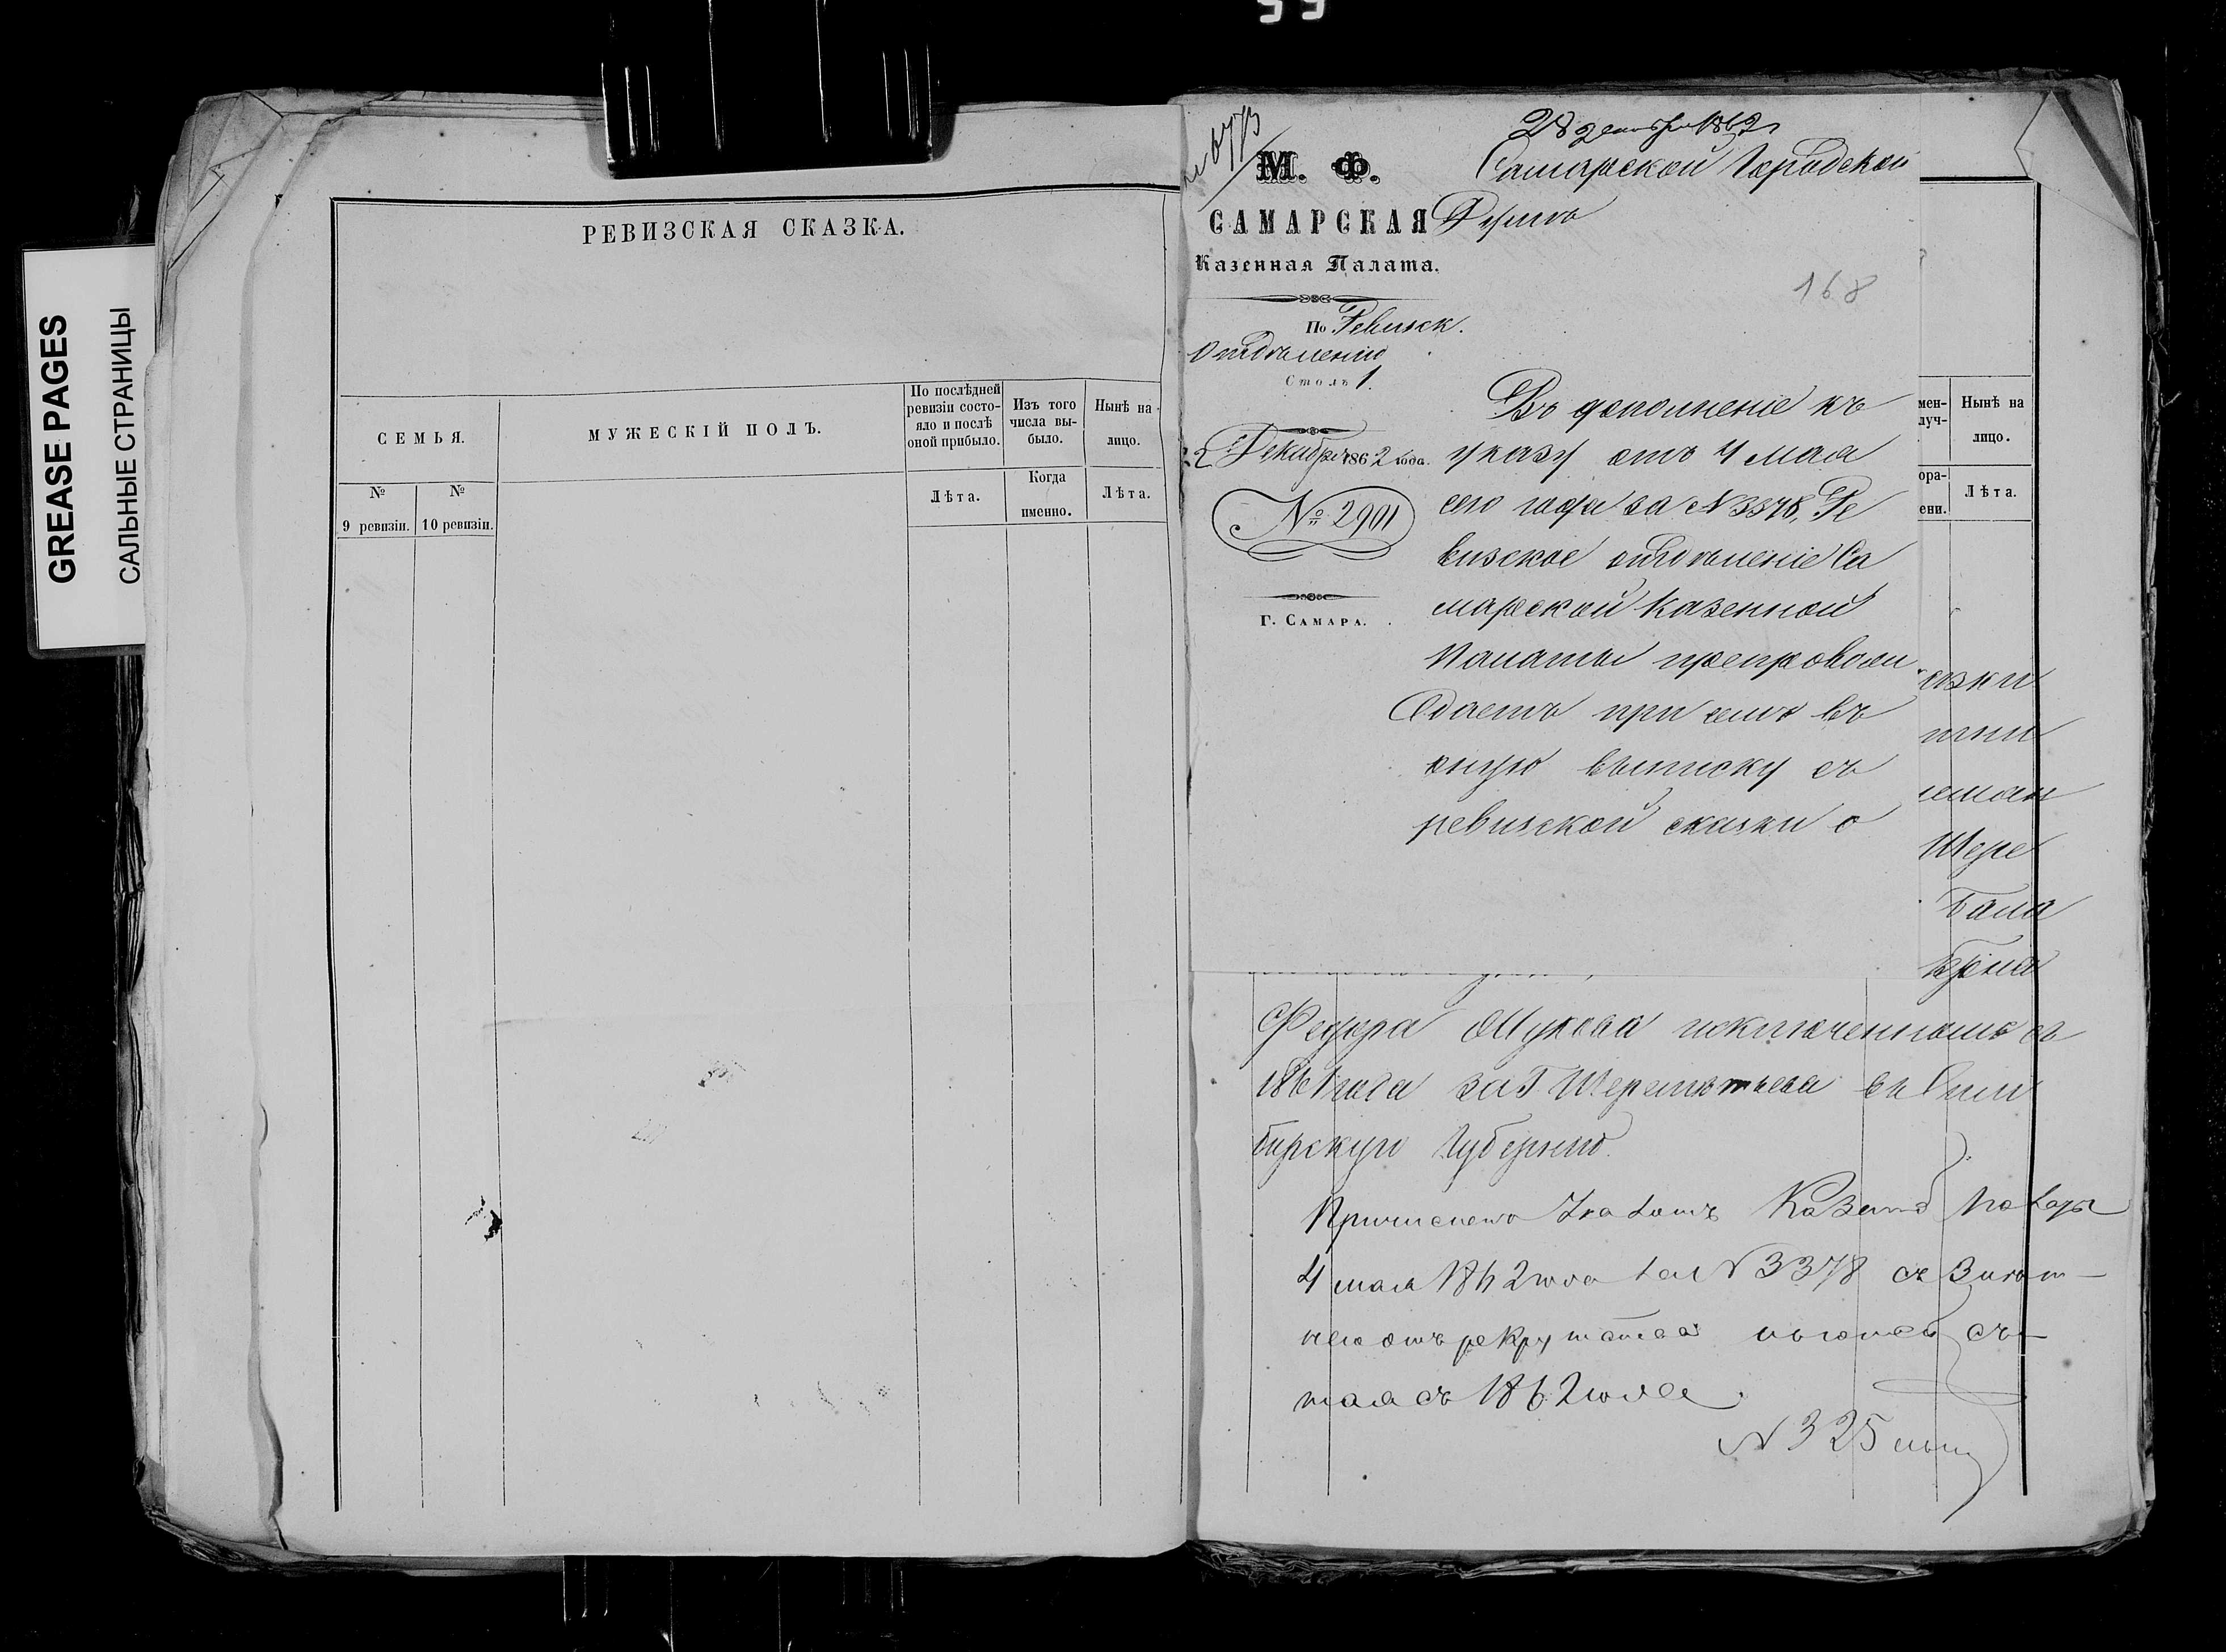 GREASE PAGES
САЛЬНЫЕ СТРАНИЦЫ
РЕВИЗСКАЯ СКАЗКА.
СЕМЬЯ.
МУЖЕСКІЙ ПОЛЪ.
По послѣдней ревизіи состо-яло и послѣ оной прибыло.
Изъ того числа вы-было.
Нынѣ на лицо.
№ 9 ревизіи.
№ 10 ревизіи.
Лѣта.
Когда именно.
Лѣта.
28 декабря 1862
М. Ф.
САМАРСКАЯ
Казенная Палата.
По Ревизск.
Отдѣленію
Столъ 1.
Декабря 1862 года.
№ 2901
Г. САМАРА.
Самарской Городской
Думѣ
168
Въ дополненіе къ
указу отъ 4 мая
сего года за № 3378, Ре
визское отдѣленіе Са
марской Казенной
Палаты препровож
даетъ при семъ въ
выписку съ
ревизской сказки о
мен-
луч-
Нынѣ на лицо.
ора-
ени.
Лѣта.
азки
Шере
Федора исключенномъ съ
1861 года за Г Шереметьева въ Сим
бирскую Губернію.
Причислено Казенной Палаты
4 мая 1862 года за № 3378 съ
1862 года
№ 325